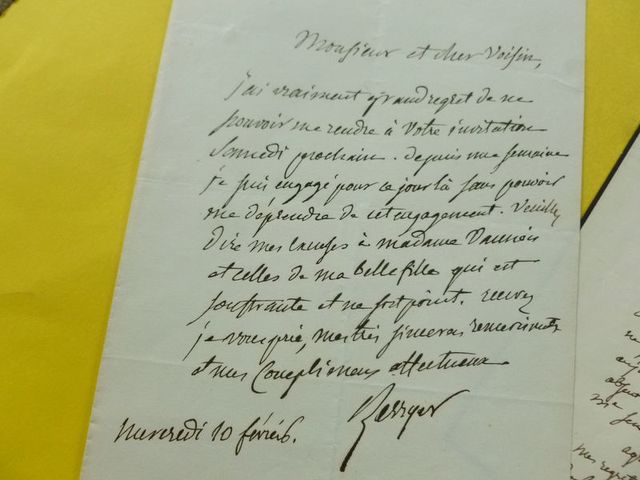 Monsieur et cher Voisin,
J'ai vraiment grand regret de ne
pouvoir me rendre à Votre invitation
Samedi prochain. depuis une semaine
je suis engagé pour ce jour là sans pouvoir
me déprendre de cet engagement. Veuillez
dire mes excuses à madame
et celles de ma belle fille qui est
souffrante et ne sort point. recevez
je vous prie, mes très sincères remerciments
et mes Complimens affectueux
Berryer
Mercredi 10 février.